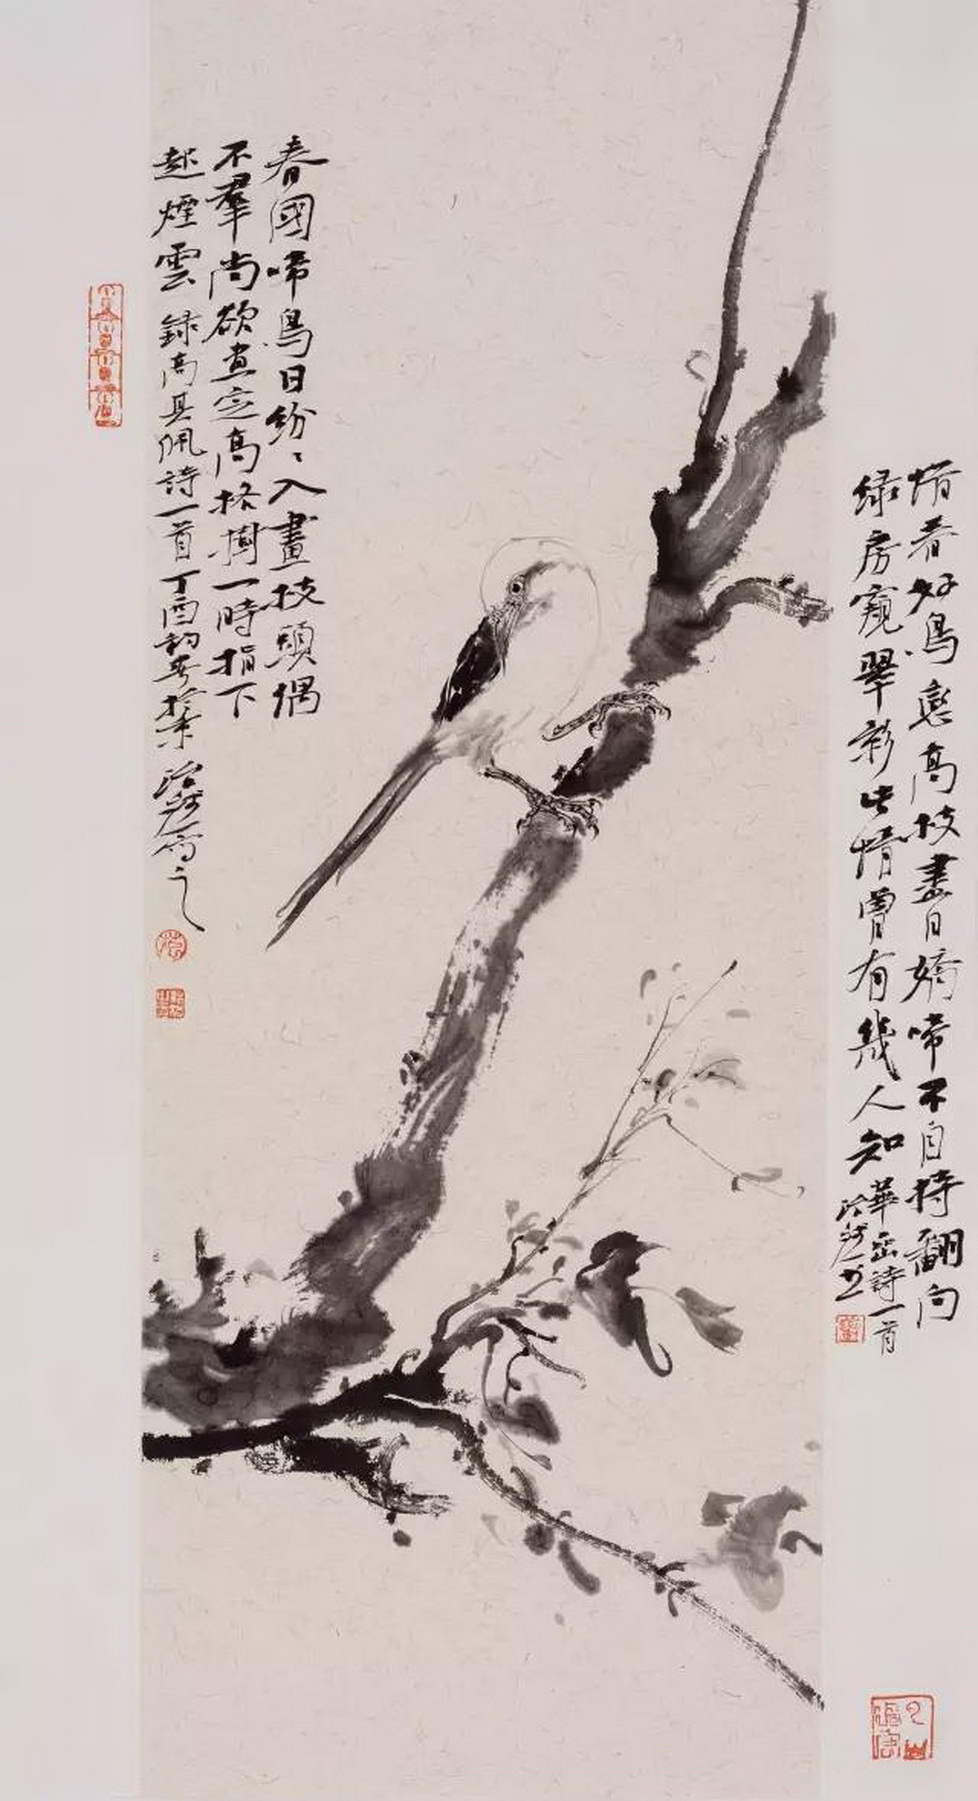 惜春好鳥戀高枝盡日嬌啼不自持翻向
綠房窺翠影此情曾有幾人知 華嵒詩一首
春園啼鳥日紛〻入畫枝頭偶
不羣尚欲畫之高格樹一時指下
起煙雲 錄高其佩詩一首丁酉
寫之